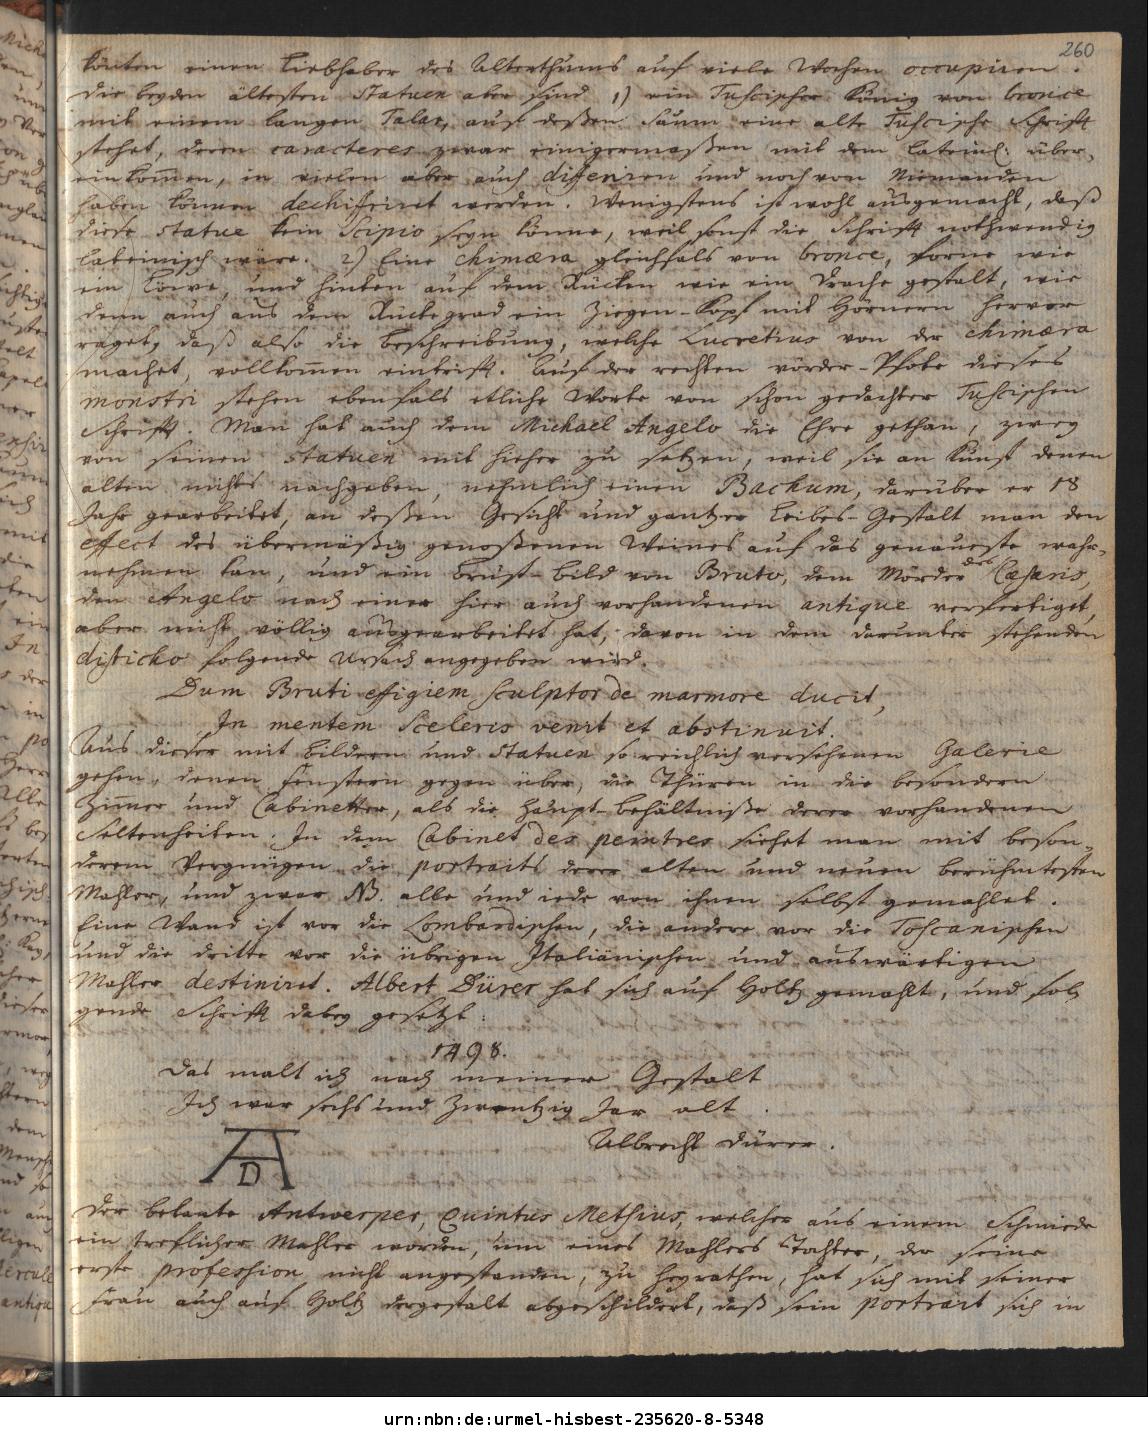 260
könten einen Liebhaber des Alterthums auf viele Wochen occupiren.
Die beyden ältesten Statuen aber sind 1) ein Tuscischer König von bronce
mit einem langen Talar, auf deßen Saum eine alte Tuscische Schrifft
stehet, deren caracteres zwar einigermaßen mit dem Latein: über-
einkommen, in vielen aber auch differiren und noch von Niemanden
haben können dechiffriret werden. Wenigstens ist wohl ausgemacht, daß
diese Statue kein Scipio seyn könne, weil sonst die Schrifft nothwendig
lateinisch wäre. 2) Eine chimæra gleichfals von bronce, forne wie
ein Löwe, und hinten auf dem Rücken wie ein Drache gestalt, wie
denn auch aus dem Rückgrad ein Ziegen-Kopf mit Hörnern hervor
raget, daß also die Beschreibung, welche Lucretius von der chimæra
machet, vollkommen eintrifft. Auf der rechten vörder-Pfote dieses
monstri stehen ebenfals etliche Worte von schon gedachter Tuscischen
Schrifft. Man hat auch dem Michael Angelo die Ehre gethan, zwey
von seinen Statuen mit hieher zu setzen, weil sie an Kunst denen
alten nichts nachgeben, nehmlich einen Bachum, darüber er 18
Jahr gearbeitet, an deßen Gesicht und gantzer Leibes-Gestalt man den
effect des übermäßig genoßenen Weines auf das genaueste wahr-
nehmen kan, und ein Brust-Bild von Bruto, dem Mörder des Cæsaris,
den Angelo nach einer hier auch vorhandenen antique verfertiget,
aber nicht völlig ausgearbeitet hat, davon in dem darunter stehenden
disticho folgende Ursach angegeben wird.
Dum Bruti effigiem Sculptor de marmore ducit,
In mentem Sceleris venit et abstinuit.
Aus dieser mit Bildern und Statuen so reichlich versehenen Galerie
gehen, denen Fenstern gegen über, die Thüren in die besondern
Zimmer und Cabinetter, als die Haupt-Behältniße derer vorhandenen
Seltenheiten. In dem Cabinet des peintres siehet man mit beson-
derem Vergnügen die portraits derer alten und neuen berühmtesten
Mahler, und zwar NB. alle und iede von ihnen selbst gemahlet.
Eine Wand ist vor die Lombardischen, die andere vor die Toscanischen
und die dritte vor die übrigen Italiänischen und auswärtigen
Mahler destiniret. Albert Dürer hat sich auf Holtz gemahlt, und fol-
gende Schrifft dabey gesetzt:
1498.
Das malt ich nach meiner Gestalt
Ich war sechs und Zwentzig Jar alt.
Albrecht Dürer.
AD
Der bekante Antwerper, Quintus Methsius, welcher aus einem Schmiede
ein treflicher Mahler worden, um eines Mahlers Tochter, der seine
erste profession nicht angestanden, zu heyrathen, hat sich mit seiner
Frau auch auf Holtz dergestalt abgeschildert, daß sein portrait sich in
urn:nbn:de:urmel-hisbest-235620-8-5348